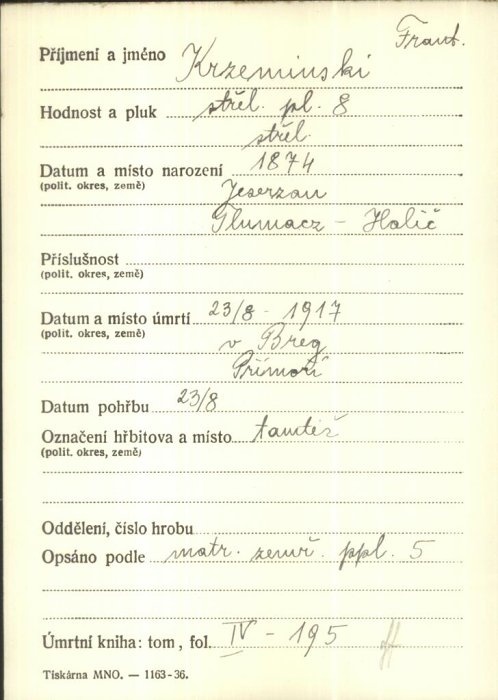 Příjmení a jméno Krzeminski Frant.
Hodnost a pluk střel. pl. 8
střel.
Datum a místo narození 1874
(polit. okres, země)
Jeserzan
Tlumacz - Halič
Příslušnost
(polit. okres, země)
Datum a místo úmrtí 23/8 - 1917
(polit. okres, země)
v Breg
Přímoří
Datum pohřbu 23/8
Označení hřbitova a místo tamtéž
(polit. okres, země)
Oddělení, číslo hrobu
Opsáno podle matr. zemř. ppl. 5
Úmrtní kniha: tom, fol. IV - 195
Tiskárna MNO. — 1163-36.